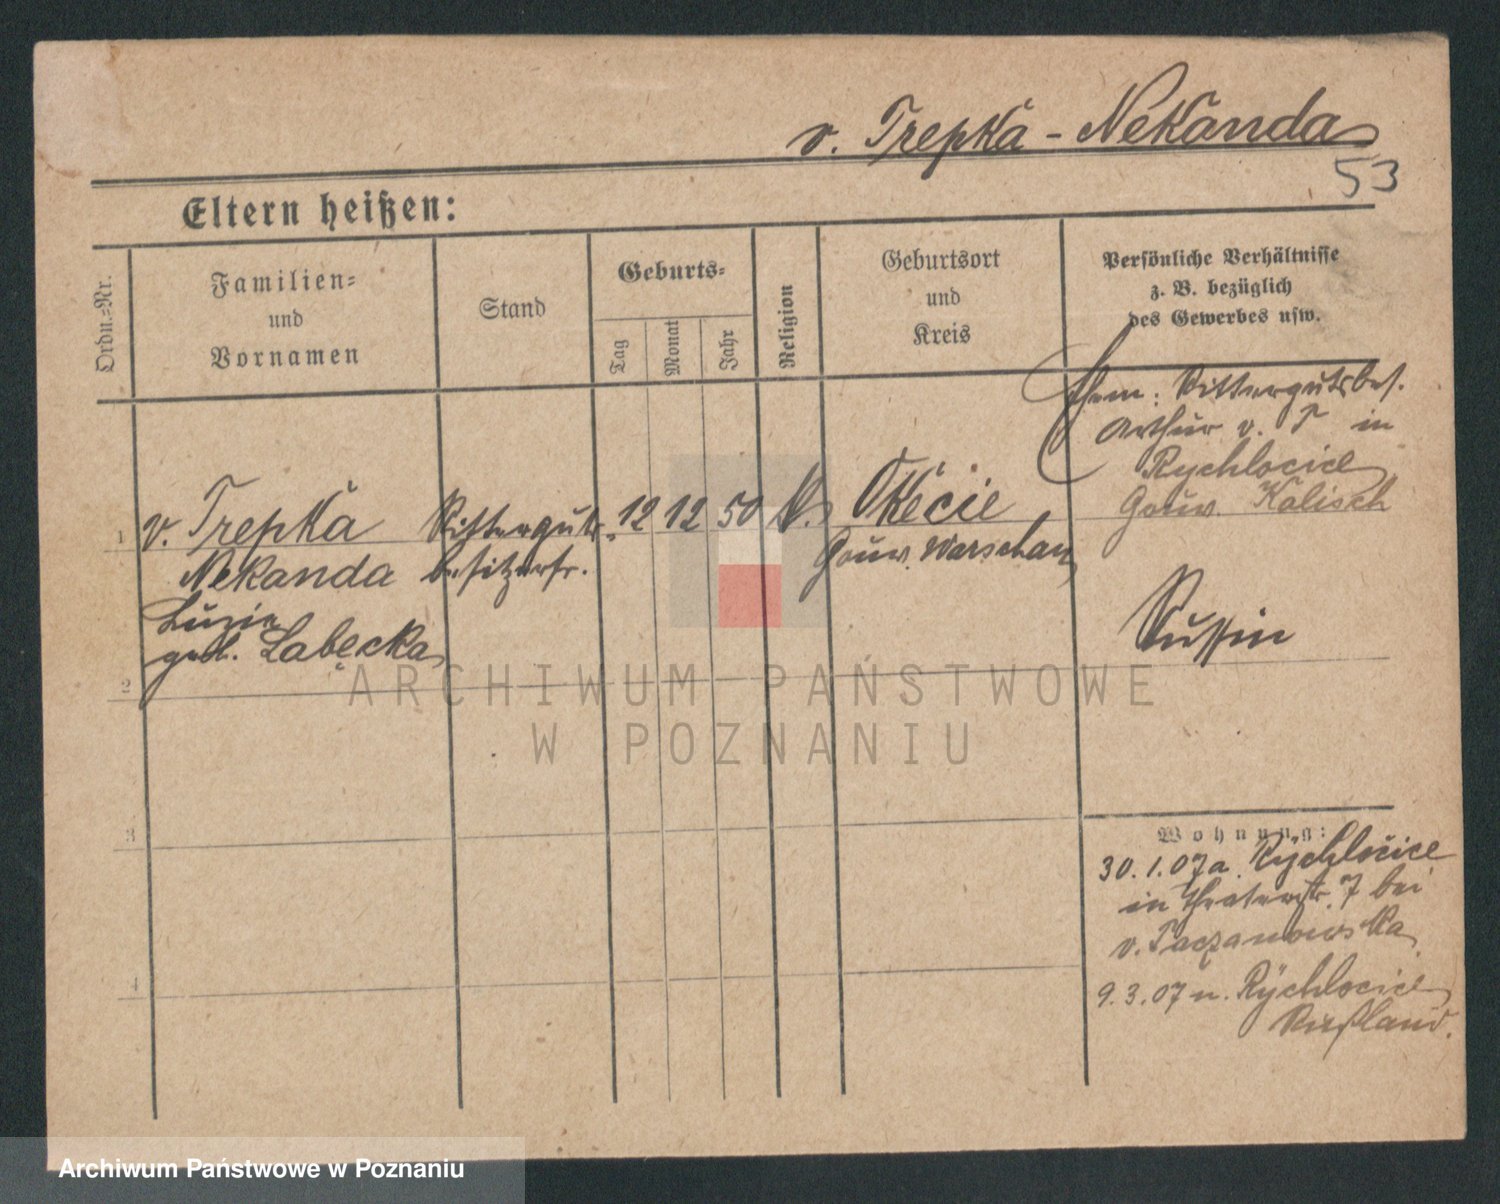 v. Trepka - Nekanda
53
Eltern heißen:
Ordn.-Nr.
Familien-
und
Vornamen
Stand
Geburts-
Tag
Monat
Jahr
Religion
Geburtsort
und
Kreis
Persönliche Verhältnisse
z. B. bezüglich
des Gewerbes usw.
Ehem: Rittergutsbes.
Arthur v. T in
Rychlocice
Gouv. Kalisch
1 v. Trepka Ritterguts- 12 12 50 k. Okecie
Nekanda besitzerfr. Gouv. Warschau
Luzie
geb. Labecka
Russin
2
3
4
Wohnung:
30.1.07 a. Rychlocice
in Theaterstr. 7 bei
v. Taczanowska
9.3.07 n. Rychlocice
Rußland.
ARCHIWUM PAŃSTWOWE
W POZNANIU
Archiwum Państwowe w Poznaniu